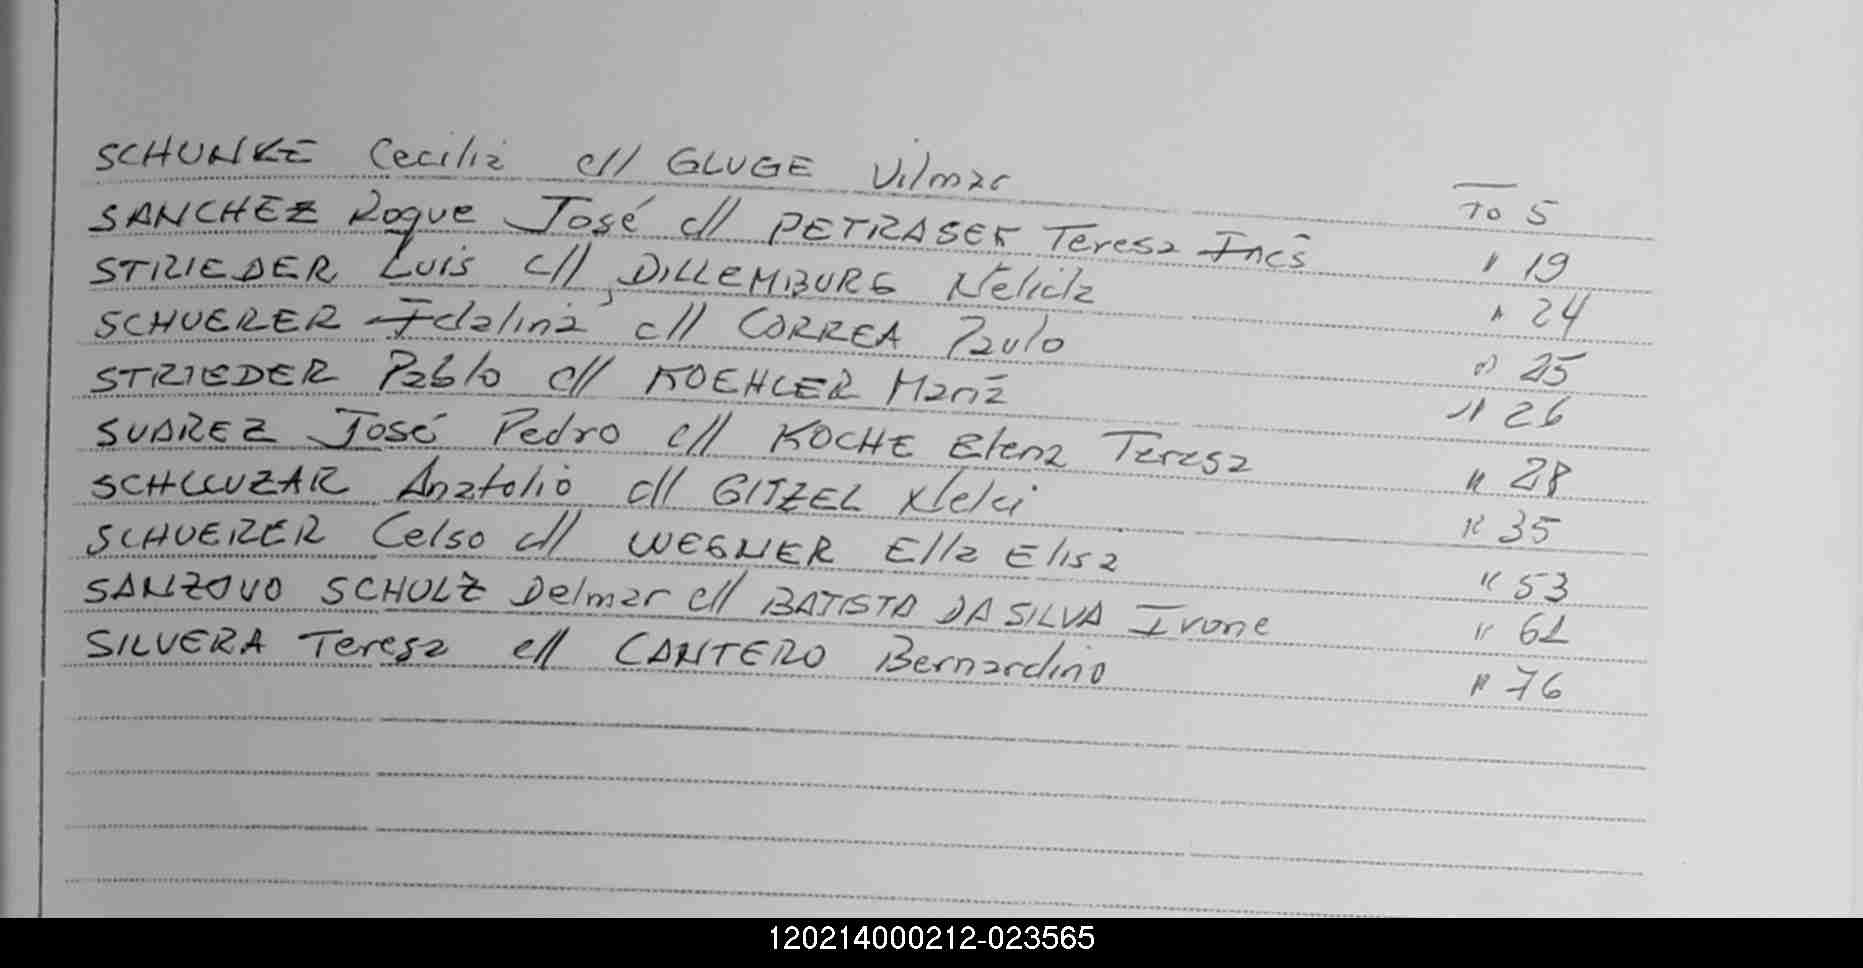 SCHUNKE Cecilia c// GLUGE Vilmar To 5
SANCHEZ Roque José c// PETRASEK Teresa Inés " 19
STRIEDER Luis c// DILLEMBURG Nelida " 24
SCHUERER Idalina c// CORREA Paulo " 25
STRIEDER Pablo c// KOEHLER María " 26
SUAREZ José Pedro c// KOCHE Elena Teresa " 28
Anatolio c// GITZEL Nelci " 35
SCHUERER Celso c// WEGNER Ella Elisa " 53
SANZOVO SCHULZ Delmar c// BATISTA DA SILVA Ivone " 61
SILVERA Teresa c// CANTERO Bernardino " 76
120214000212-023565